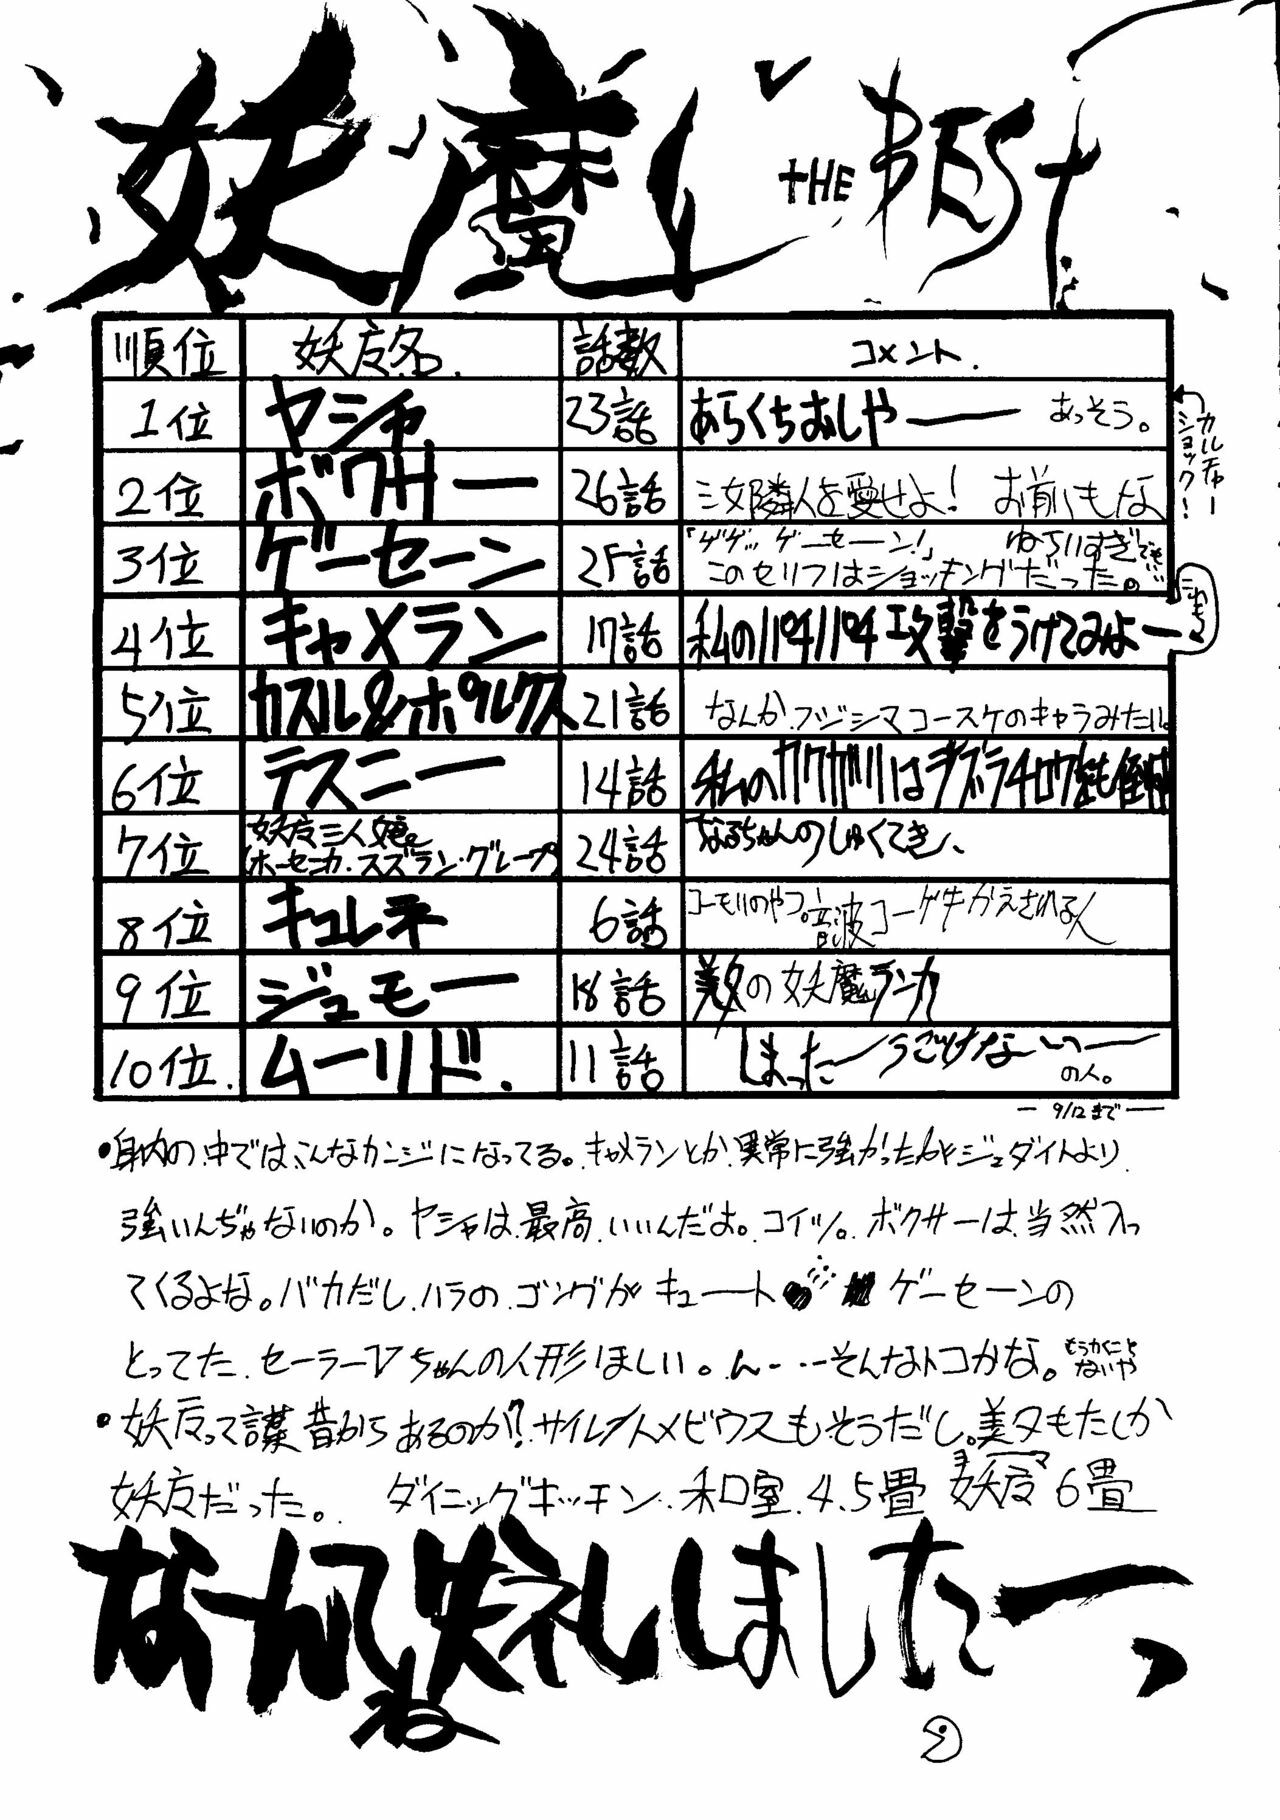 妖魔し THE BEST
順位 妖广名. 話数 コメント.
1位 ヤシャ 23話 あらくちおしやー あっそう。
カルチャーショック!
2位 ボクサー 26話 汝隣人を愛せよ! お前もな
3位 ゲーセーン 25話 「ゲゲッ ゲーセーン!」
このセリフはショッキングだった。
これも
4位 キャメラン 17話 私のパチパチ攻撃をうけてみよー
5位 カスル&ポルクス 21話 なんか、フジシマコースケのキャラみたい。
6位 テスニー 14話
7位 妖广三人娘
(ホーセンカ・スズラン・グレープ) 24話 なるちゃんのしゅくてき、
8位 キュレネ 6話 コーモリのやつ。音波コーゲキかえされる人
9位 ジュモー 18話 美夕の妖魔ランカ
10位. ムーリド. 11話 しまったーうごけないっー
の人。
— 9/12まで —
•身内の中では、こんなカンジになってる。キャメランとか異常に強かったしジェダイトより
強いんぢゃないのか。ヤシャは最高、いいんだよ。コイツ。ボクサーは、当然入っ
てくるよな。バカだし、ハラのゴングがキュート ゲーセーンの
とってた、セーラーVちゃんの人形ほしい。ん・・・そんなトコかな。もうかくこと
ないや
•妖广って言葉昔からあるのか?サイレントメビウスもそうだし。美夕もたしか
妖广だった。 ダイニングキッチン、和室、4.5畳 妖广 6畳
ヨーマ
なーんてね 失礼しましたーっ